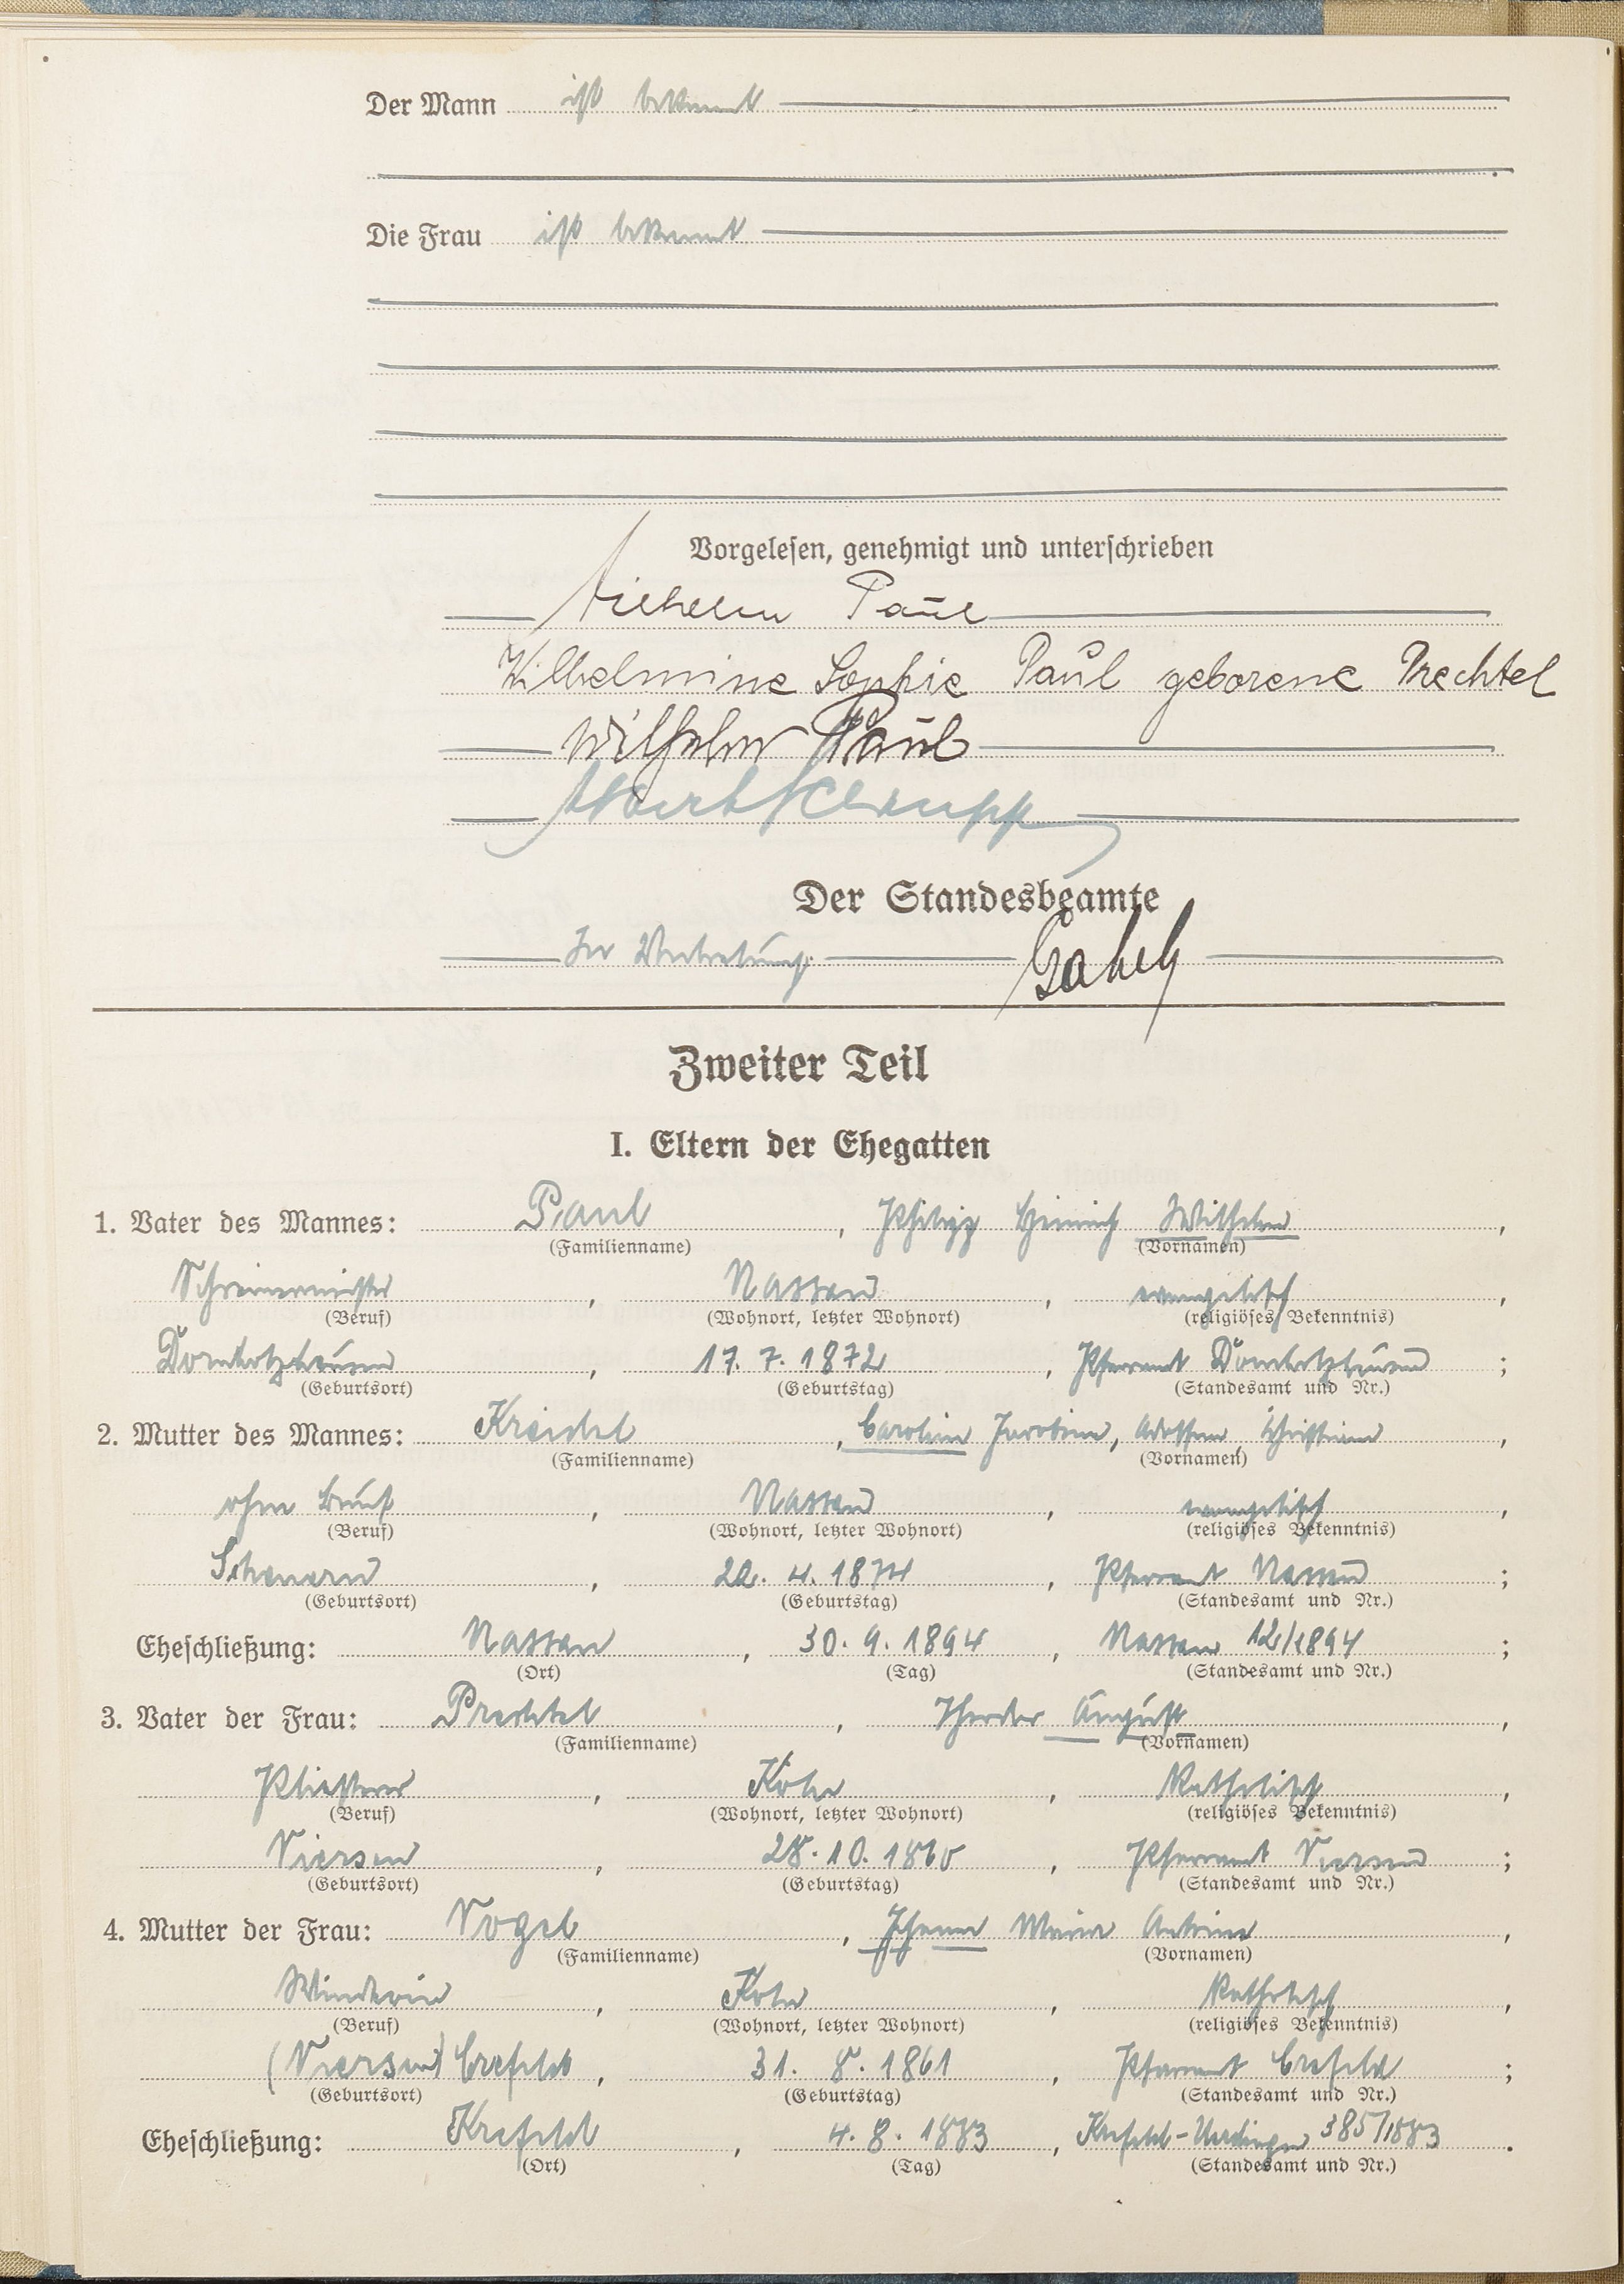 Der Mann ist bekannt
Die Frau ist bekannt
Vorgelesen, genehmigt und unterschrieben
Wilhelm Paul
Wilhelmine Sophie Paul geborene Prechtel
Wilhelm Paul
Der Standesbeamte
In Vertretung:
Zweiter Teil
I. Eltern der Ehegatten
1. Vater des Mannes: Paul, Philipp Heinrich Wilhelm,
(Familienname) (Vornamen)
Schreinermeister, Nassau, evangelisch,
(Beruf) (Wohnort, letzter Wohnort) (religiöses Bekenntnis)
Dornholzhausen, 17. 7. 1872, Pfarramt Dornholzhausen;
(Geburtsort) (Geburtstag) (Standesamt und Nr.)
2. Mutter des Mannes: Kreidel, Caroline Jacobine, Christiane,
(Familienname) (Vornamen)
ohne Beruf, Nassau, evangelisch,
(Beruf) (Wohnort, letzter Wohnort) (religiöses Bekenntnis)
Scheuern, 22. 4. 1874, Pfarramt Nassau;
(Geburtsort) (Geburtstag) (Standesamt und Nr.)
Eheschließung: Nassau, 30. 9. 1894, Nassau 12/1894;
(Ort) (Tag) (Standesamt und Nr.)
3. Vater der Frau: Prechtel, Theodor August,
(Familienname) (Vornamen)
Pliesterer, Köln, katholisch,
(Beruf) (Wohnort, letzter Wohnort) (religiöses Bekenntnis)
Viersen, 28. 10. 1860, Pfarramt Viersen;
(Geburtsort) (Geburtstag) (Standesamt und Nr.)
4. Mutter der Frau: Vogel, Maria
(Familienname) (Vornamen)
Winderin, Köln, katholisch,
(Beruf) (Wohnort, letzter Wohnort) (religiöses Bekenntnis)
(Viersen) Crefeld, 31. 8. 1861, Pfarramt Crefeld;
(Geburtsort) (Geburtstag) (Standesamt und Nr.)
Eheschließung: Krefeld, 4. 8. 1883, Krefeld-Uerdingen 385/1883.
(Ort) (Tag) (Standesamt und Nr.)